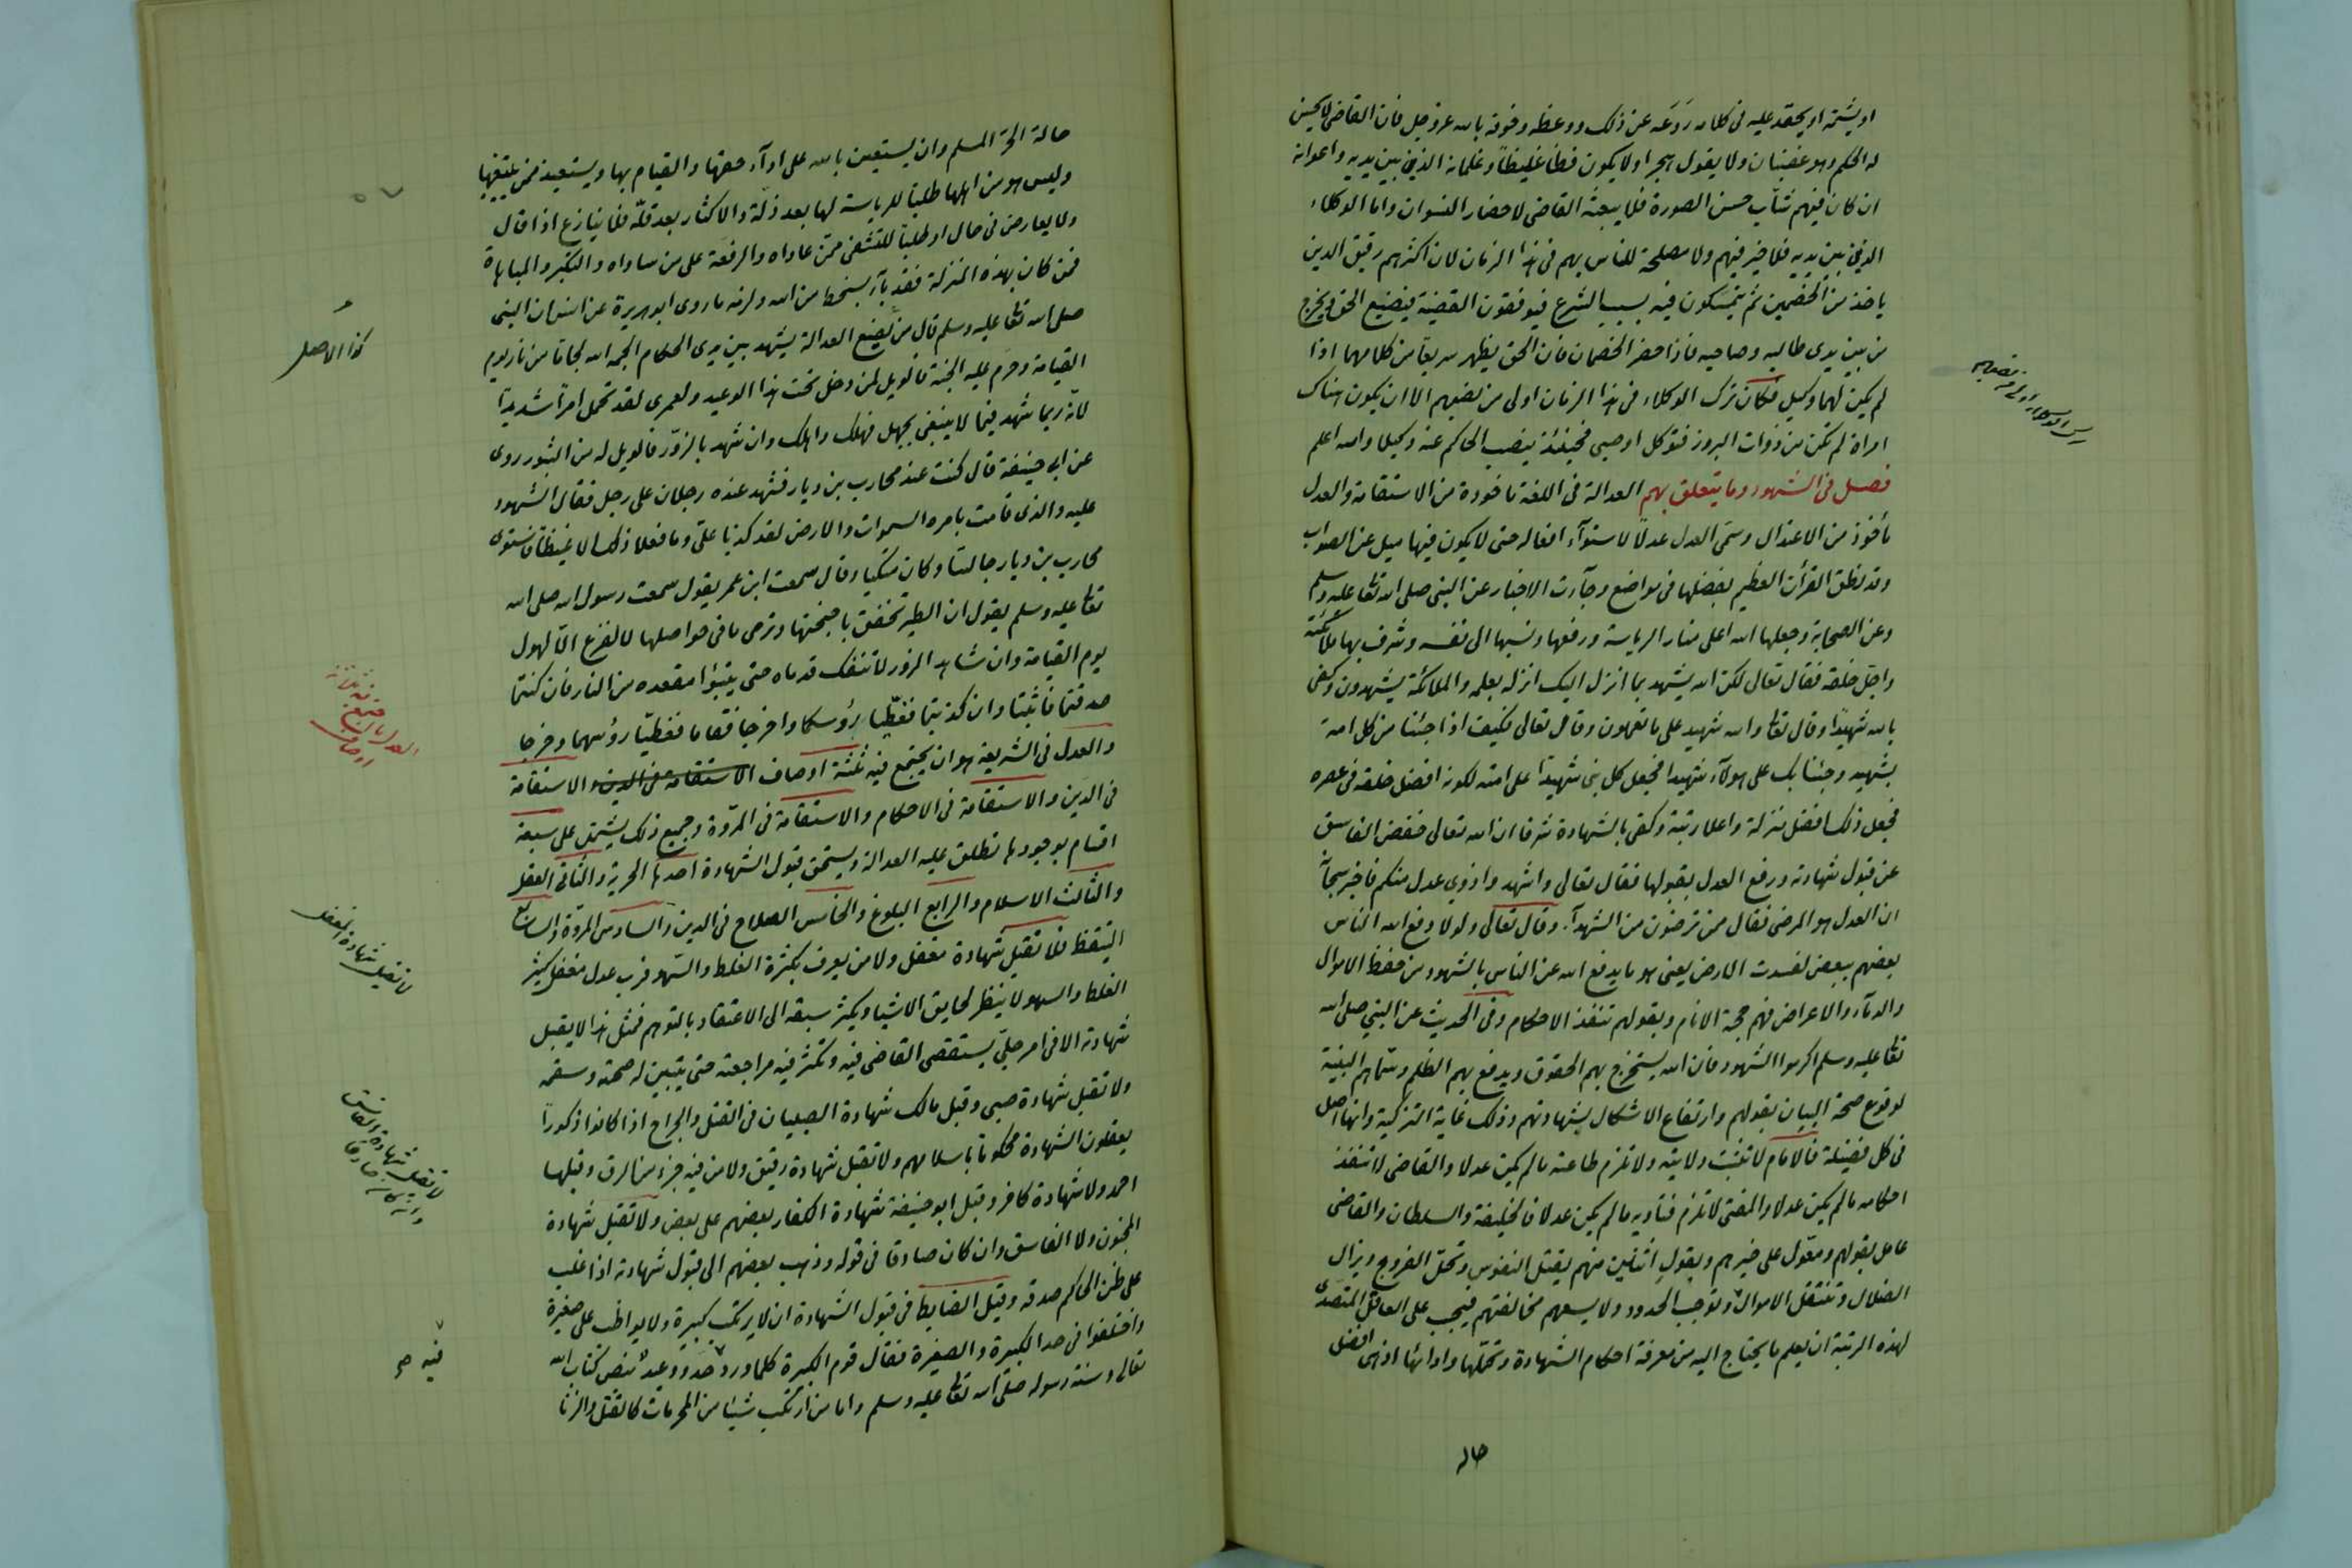 او يشتمه او يحقد عليه فى كلامه رَدَعَه عن ذلك ووعظه وخوفه بالله عز وجل فان القاضى لا يحسن
له الحكم وهو غضبان ولا يقول هجرا ولا يكون فظا غليظاً وغلمانه الذين بين يديه واعوانه
ان كان فيهم شابّ حسن الصورة فلا يبعثه القاضى لاحضار النسوان واما الوكلاء
الذين بين يديه فلا خير فيهم ولا مصلحة للناس بهم فى هذا الزمان لان اكثرهم رقيق الدين
ياخذ من الخصمين ثم يتمسكون فيه بسبب الشرع فيوقفون القضية فيضيع الحق ويخرج
من بين يدى طالبه وصاحبه فاذا حضر الخصمان فان الحق يظهر سريعاً من كلامهما اذا
لم يكن لهما وكيل فكان ترك الوكلاء فى هذا الزمان اولى من نصبهم الا ان يكون هناك
امراة لم تكن من ذوات البروز فتوكل او صبى فحينئذ ينصب الحاكم عنه وكيلا والله اعلم
فصل فى الشهود وما يتعلق بهم العدالة فى اللغة ماخوذة من الاستقامة والعدل
مأخوذ من الاعتدال وسمى العدل عدلاً لاستوآء افعاله حتى لا يكون فيها ميل عن الصواب
وقد نطق القرأن العظيم بفضلها فى مواضع وجآءت الاخبار عن النبى صلى الله تعا عليه وسلم
وعن الصحابة وجعلها الله اعلى منار الرياسة ورفعها ونسبها الى نفسه وشرف بها ملائكته
واجل خلقه فقال تعالى لكن الله يشهد بما انزل اليك انزله بعلمه والملائكة يشهدون وكفى
بالله شهيدًا وقال تعا والله شهيد على ما تعملون وقال تعالى فكيف اذا جئنا من كل امة
بشهيد وجئنا بك على هولآء شهيدا فجعل كل نبى شهيدًا على امته لكونه افضل خلقه فى عصره
فجعل ذلك افضل منزلة واعلا رتبة وكفى بالشهادة شرفا ان الله تعالى خفض الفاسق
عن قبول شهادته ورفع العدل بقبولها فقال تعالى واشهدوا ذوى عدل منكم فاخبر سبحانه
ان العدل هو المرضى فقال ممن ترضون من الشهدآء وقال تعالى ولولا دفع الله الناس
بعضهم ببعض لفسدت الارض يعنى هو ما يدفع الله عن الناس بالشهود من حفظ الاموال
والدمآء والاعراض فهم حجة الانام وبقولهم تنفذ الاحكام وفى الحديث عن النبى صلى الله
تعا عليه وسلم اكرموا الشهود فان الله يستخرج بهم الحقوق ويدفع بهم الظلم وسماهم البينة
لوقوع صحة البيان بقولهم وارتفاع الاشكال بشهادتهم وذلك غاية التزكية وانها اصل
فى كل فضيلة فالامام لا تثبت ولايته ولا تلزم طاعته ما لم يكن عدلا والقاضى لا تنفذ
احكامه ما لم يكن عدلا والمفتى لا تلزم فتاويه ما لم يكن عدلا فالخليفة والسلطان والقاضى
عامل بقولهم ومعّول على خبرهم وبقول اثنين منهم يقتل النفوس وتحل الفروج ويزال
الضلال وتنتقل الاموال وتوجب الحدود ولا يسعهم مخالفتهم فيجب على العاقل المتصدى
لهذه الرتبة ان يعلم ما يحتاج اليه من معرفة احكام الشهادة وتحملها وادائها اذ هى افضل
حاله
حالة الحرّ المسلم وان يستعين بالله على ادآء حقها والقيام بها ويستعيذ ممن
وليس هو من اهلها طلبا للرياسة لها بعد ذلّة والاكثار بعد قلّة فلا ينازع اذا قال
ولا يعارض فى حال او طلباً للتشفى ممّن عاداه والرفعة على من ساواه والتكبّر والمباهاة
فمن كان بهذه المنزلة فقد بآء بسخط من الله ولزمه ما روى ابو هريرة عن النبى
صلى الله تعا عليه وسلم قال من يضيع العدالة يشهد بين يدى الحكام الجمه الله لجاما من نار يوم
القيامة وحرّم عليه الجنة فالويل لمن دخل تحت هذا الوعيد ولعمرى لقد تحمل امراً شديداً
لأنه ربما شهد فيما لا ينبغى بجهل فهلك واهلك وان شهد بالزور فالويل له من الثبور روى
عن ابى حنيفة قال كنت عند محارب بن ديار فشهد عنده رجلان على رجل فقال المشهود
عليه والذى قامت بامره السموات والارض لقد كذبا علىّ وما فعلا ذلك الا غيظا فاستوى
محارب بن ديار جالسًا وكان متكيا وقال سمعت ابن عمر يقول سمعت رسول الله صلى الله
تعا عليه وسلم يقول ان الطير تخفق باجنحتها وترمى ما فى حواصلها لا لفزع الّا لهول
يوم القيامة وان شاهد الزور لا تنفك قدماه حتى يتبوّا مقعده من النار فان كنتما
صدقتما فاثبتا وان كذبتما فغطّيا رؤسكما واخرجا فقاما فغطيّا رؤسهما وخرجا
والعدل فى الشريعة هو ان يجتمع فيه ثلثة اوصاف الاستقامة فى الدين والاستقامة
فى الدين والاستقامة فى الاحكام والاستقامة فى المروّة وجميع ذلك يشتمل على سبعة
اقسام بوجودها تطلق عليه العدالة ويستحق قبول الشهادة احدها الحرية والثانى العقل
والثالث الاسلام والرابع البلوغ والخامس الصلاح فى الدين والسادس المروّة والسابع
التيقظ فلا تقبل شهادة مغفل ولا من يعرف بكثرة الغلط والسهو فرب عدل مغفل كثير
الغلط والسهو لا ينظر لحايق الاشيا ويكثر سبقه الى الاعتقاد بالتوهم فمثل هذا لا يقبل
شهادته الا فى امر جلىّ يستقصى القاضى فيه وتكثر فيه مراجعته حتى يتبين له صحته وسقمه
ولا تقبل شهادة صبى وقبل مالك شهادة الصبيان فى القتل والجراح اذا كانوا ذكوراً
يعقلون الشهادة محكوما باسلامهم ولا تقبل شهادة رقيق ولا من فيه جزء من الرق وقبلها
احمد ولا شهادة كافر وقبل ابو حنيفة شهادة الكفار بعضهم على بعض ولا تقبل شهادة
المجنون ولا الفاسق وان كان صادقا فى قوله وذهب بعضهم الى قبول شهادته اذا غلب
على ظن الحاكم صدقه وقيل الضابط فى قبول الشهادة ان لا يرتكب كبيرة ولا يواظب على صغيرة
واختلفوا فى حد الكبيرة والصغيرة فقال قوم الكبيرة كلما ورد حدّ ووعيد بنص كتاب الله
تعالى وسنة رسوله صلى الله تعا عليه وسلم واما من ارتكب شيئا من المحرمات كالقتل والزنا
كذا الاصل
لا تقبل شهادة المغفل
لا تقبل شهادة الفاسق
وان كان صادقا
فيه صح